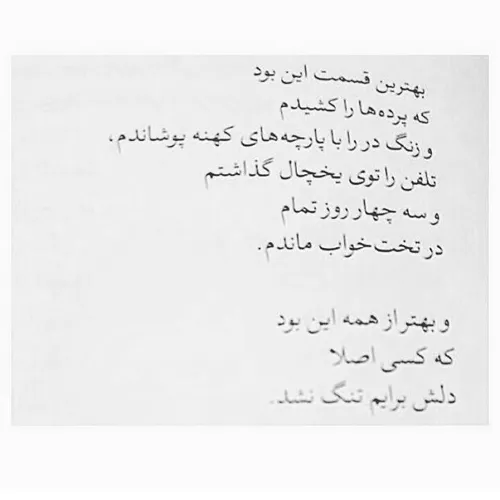 بهترین قسمت این بود
که پرده‌ها را کشیدم
و زنگ در را با پارچه‌های کهنه پوشاندم،
تلفن را توی یخچال گذاشتم
و سه چهار روز تمام
در تخت‌خواب ماندم.
و بهتر از همه این بود
که کسی اصلا
دلش برایم تنگ نشد.